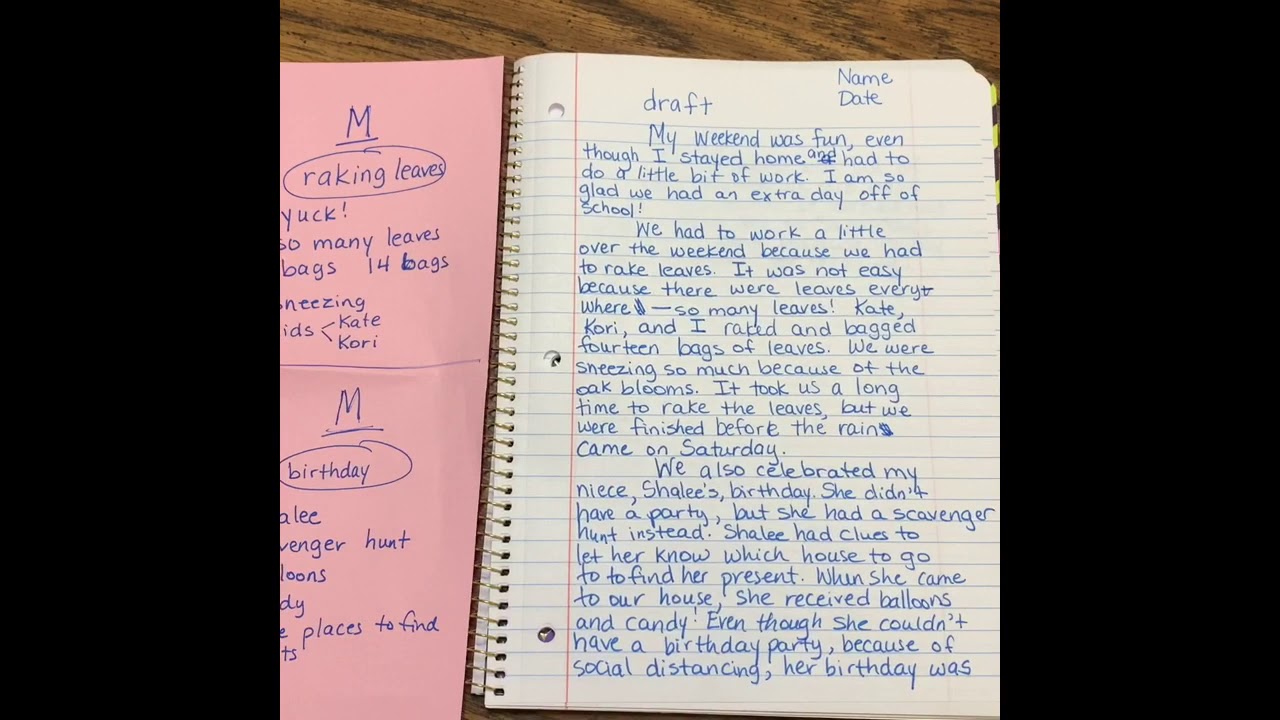 M
raking leaves
yuck!
so many leaves
bags 14 bags
sneezing
ids < Kate
Kori
M
birthday
alee
venger hunt
loons
dy
e places to find
ts
Name
Date
draft
My weekend was fun, even
though I stayed home and had to
do a little bit of work. I am so
glad we had an extra day off of
school!
We had to work a little
over the weekend because we had
to rake leaves. It was not easy
because there were leaves every
where — so many leaves! Kate,
Kori, and I raked and bagged
fourteen bags of leaves. We were
sneezing so much because of the
oak blooms. It took us a long
time to rake the leaves, but we
were finished before the rain
came on Saturday.
We also celebrated my
niece, Shalee's, birthday. She didn't
have a party, but she had a scavenger
hunt instead. Shalee had clues to
let her know which house to go
to to find her present. When she came
to our house, she received balloons
and candy! Even though she couldn't
have a birthday party, because of
social distancing, her birthday was